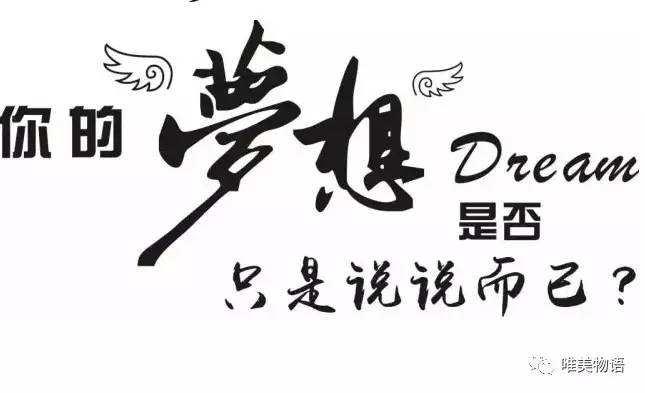 你的夢想 Dream
是否
只是说说而已？
唯美物语